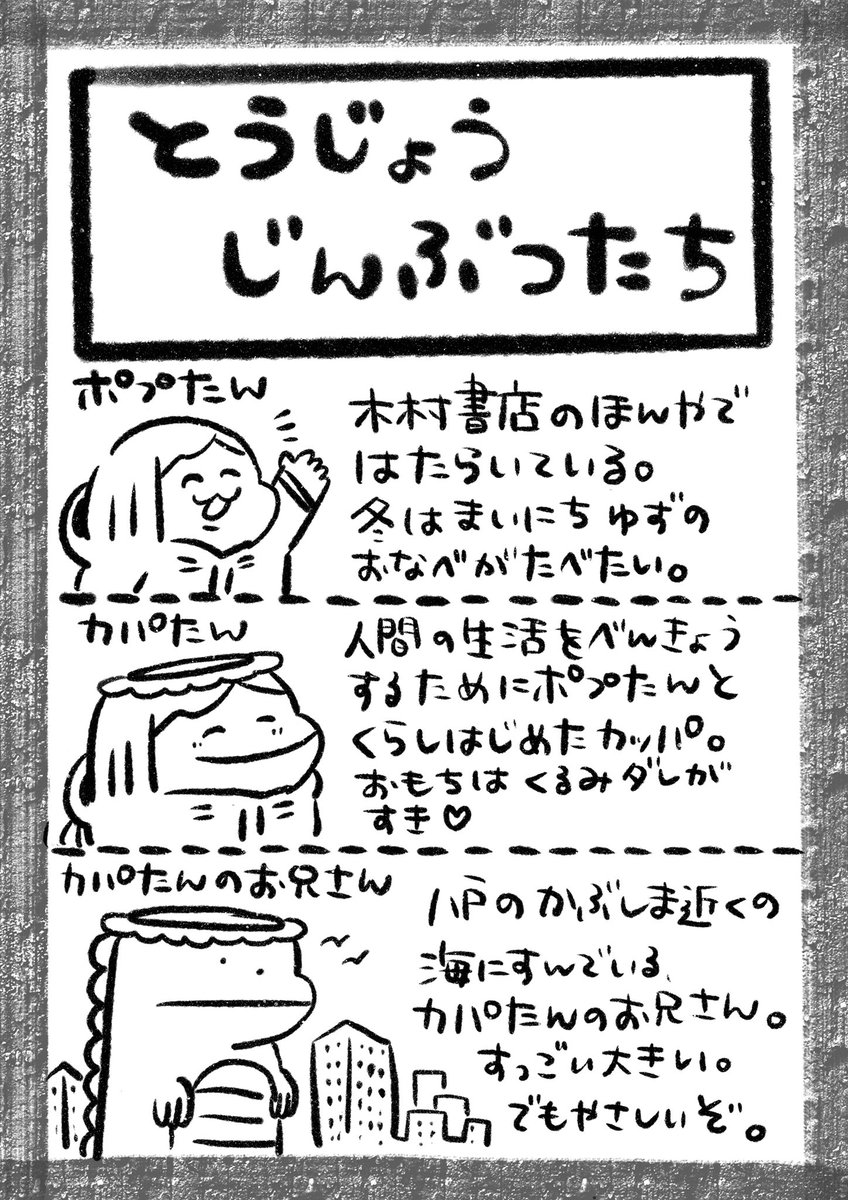 とうじょう
じんぶつたち
ポプたん
木村書店のほんやで
はたらいている。
冬はまいにち ゆずの
おなべがたべたい。
カパたん
人間の生活をべんきょう
するためにポプたんと
くらしはじめたカッパ。
おもちは くるみダレが
すき♡
カパたんのお兄さん
八戸のかぶしま近くの
海にすんでいる、
カパたんのお兄さん。
すっごい大きい。
でもやさしいぞ。